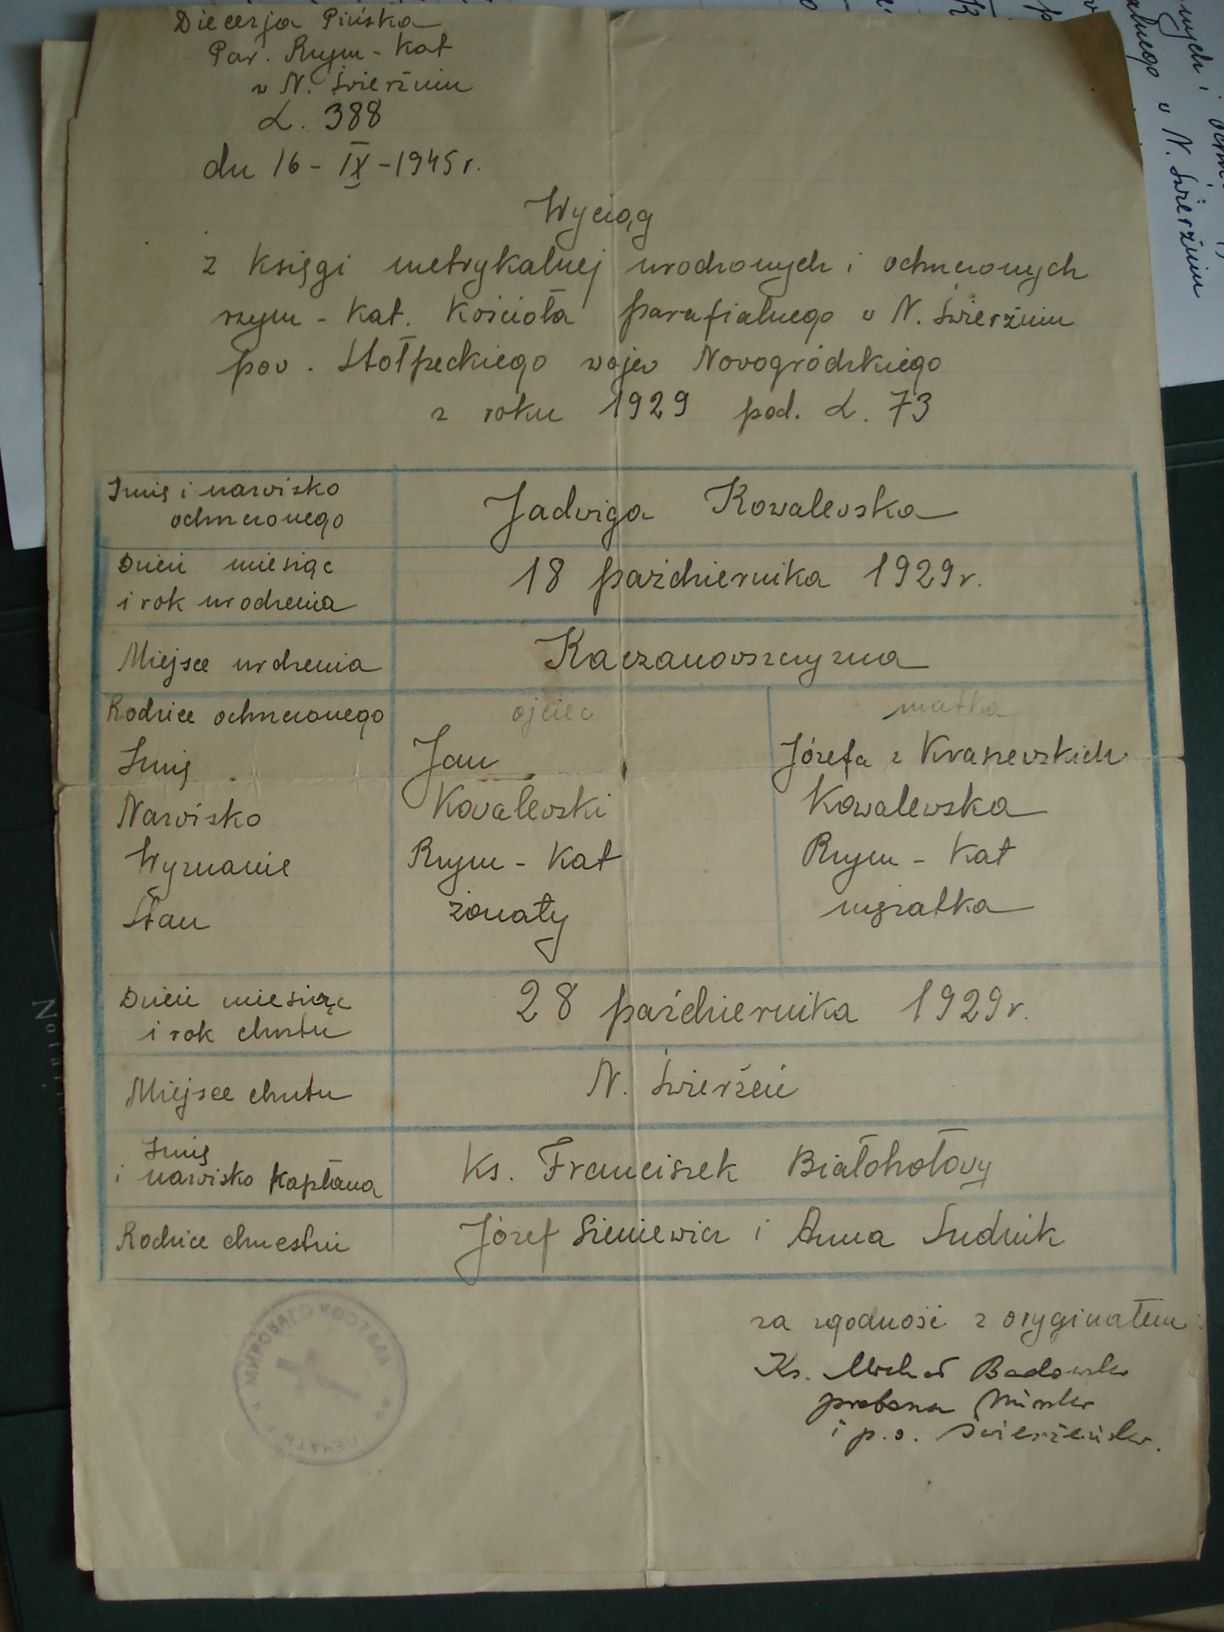 Diecezja Pińska
Par. Rzym - Kat
w N. Świerżniu
L. 388
dn 16 - IX - 1945 r.
Wyciąg
z księgi metrykalnej urodzonych i ochrzczonych
rzym - kat. Kościoła parafialnego w N. Świerżniu
pow. Stołpeckiego wojew Nowogródzkiego
z roku 1929 pod. L. 73
Imię i nazwisko
ochrzczonego
Jadwiga Kowalewska
Dzień miesiąc
i rok urodzenia
18 października 1929 r.
Miejsce urdzenia
Kaczanowszczyzna
Rodzice ochrzczonego
ojciec
matka
Imię
Jan
Józefa z Kraszewskich
Nazwisko
Kowalewski
Kowalewska
Wyznanie
Rzym - Kat
Rzym - Kat
Stan
żonaty
mężatka
Dzień miesiąc
i rok chrztu
28 października 1929 r.
Miejsce chrztu
N. Świerżeń
Imię
i nazwisko kapłana
Ks. Franciszek Białohołowy
Rodzice chrzestni
Józef Sieniewicz i Anna Ludnik
za zgodność z oryginałem:
Ks. Michał Badowski
proboszcz Mirski
i p.o. Świerżeński.
МИРСКАГО КОСТЕЛА
ПЕЧАТЬ
N. Świerżniu